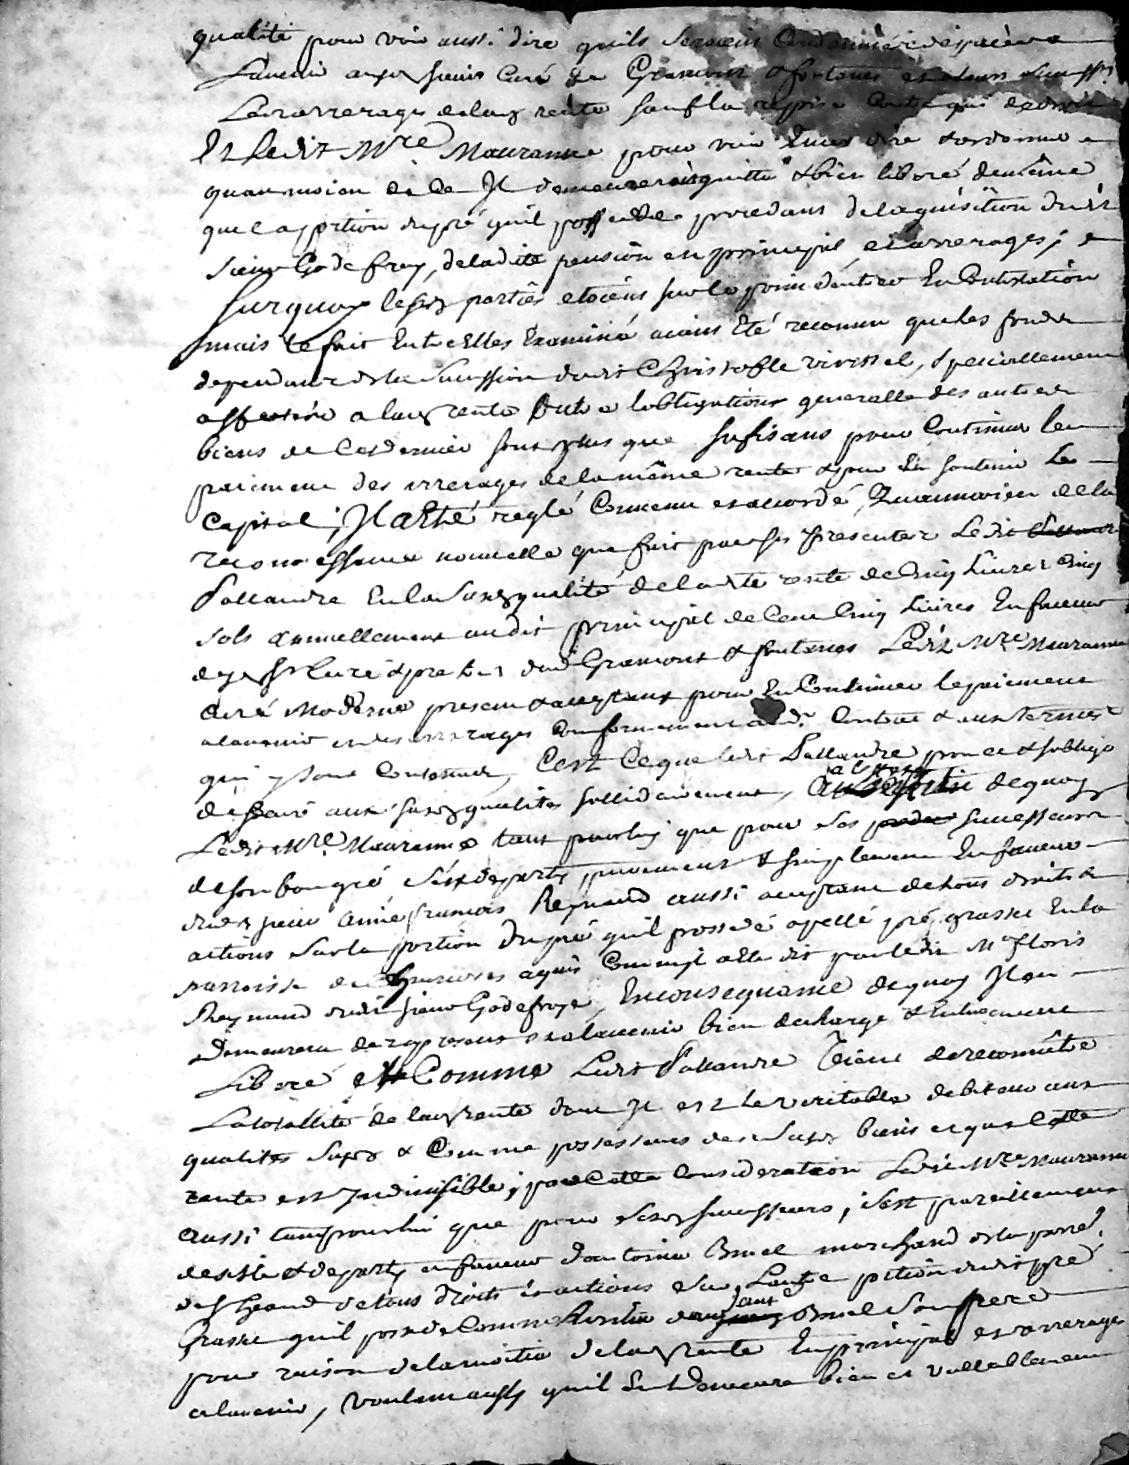 qualité pour voir aussi dire quils seroient Condamnés de paier a
Lavenir auxd. sieurs Curé de Gramont & fontanes et a leurs Success.rs
Les arrerages de lad. rente sauf la reprise Contre qui de droit
Et Ledit Mre Mauranne pour voir dire & ordonner
quau moien de ce Il demeureroit quitte & bien liberé de même
que la portion du pré quil possede procedant de laquisition dudit
sieur Godefroy, de ladite pension en principal, et arrerages; &
Surquoy lesd. parties etoient sur le point dentrer En Contestation
mais le fait Entre Elles Examiné aiant Eté reconnu que les fonds
dependants de la Succession dudit Christofle vivissel, specialement
affectés a lad. rente outre lobligation generalle des autres
biens de Ce dernier sont plus que sufisans pour Continuer le
paiement des arrerages de la même rente & pour En soutenir Le
Capital; Il a Eté reglé Convenu et accordé, Quau moien de la
reconnoissance nouvelle que fait par ces presentes Ledit
Pallandre En la susd. qualité de la dte rente de Cinq Livres Cinq
sols annuellement au dit principal de Cent Cinq Livres En faveur
desd. srs Curé & pretres dud. Gramont & fontanes Ledit Mre Mauranne
Curé Moderne present & acceptant pour En Continuer le paiement
a lavenir et des arrerages Conformement aud. Contrat & aux termes
qui y sont Contenus, Cest Ce que ledit Pallandre promet & soblige
de faire aux susd. qualités sollidairement, Au moyen de quoy
Ledit Mre Mauranne tant pour luy que pour ses successeurs
de son bon gré sest departy purement & simplement En faveur
dudit sieur Aimé françois Reynaud aussi acceptant de tous droits &
actions sur la portion du pré quil possede apellé pré grasset En la
parroisse de acquis Comme il a Eté dit par ledit Me floris
Reynaud dudit sieur Godefroye, En consequance de quoy Il en
Demeurera de a present et a lavenir bien decharge & Entierement
Liberé et Comme Ledit Pallandre vient de reconnoître
La totallité de lad. rente dont Il est le veritable debiteur aux
qualités susd. & Comme possesseur des susd. biens et que Cette
rente est Indivisible; par Cette Consideration Ledit Mre Mauranne
aussi tant pour lui que pour sesd. successeurs, sest pareillement
desisté & departy en faveur dantoine Bruel marchand de la parr.
de st heand de tous droits et actions sur Lautre portion dudit pré
Grasset quil possede Comme heritier Bruel son frere
pour raison de la moitié de lad. rente En principal et arrerages
a lavenir, voulant aussy quil En Demeure bien et vallablement